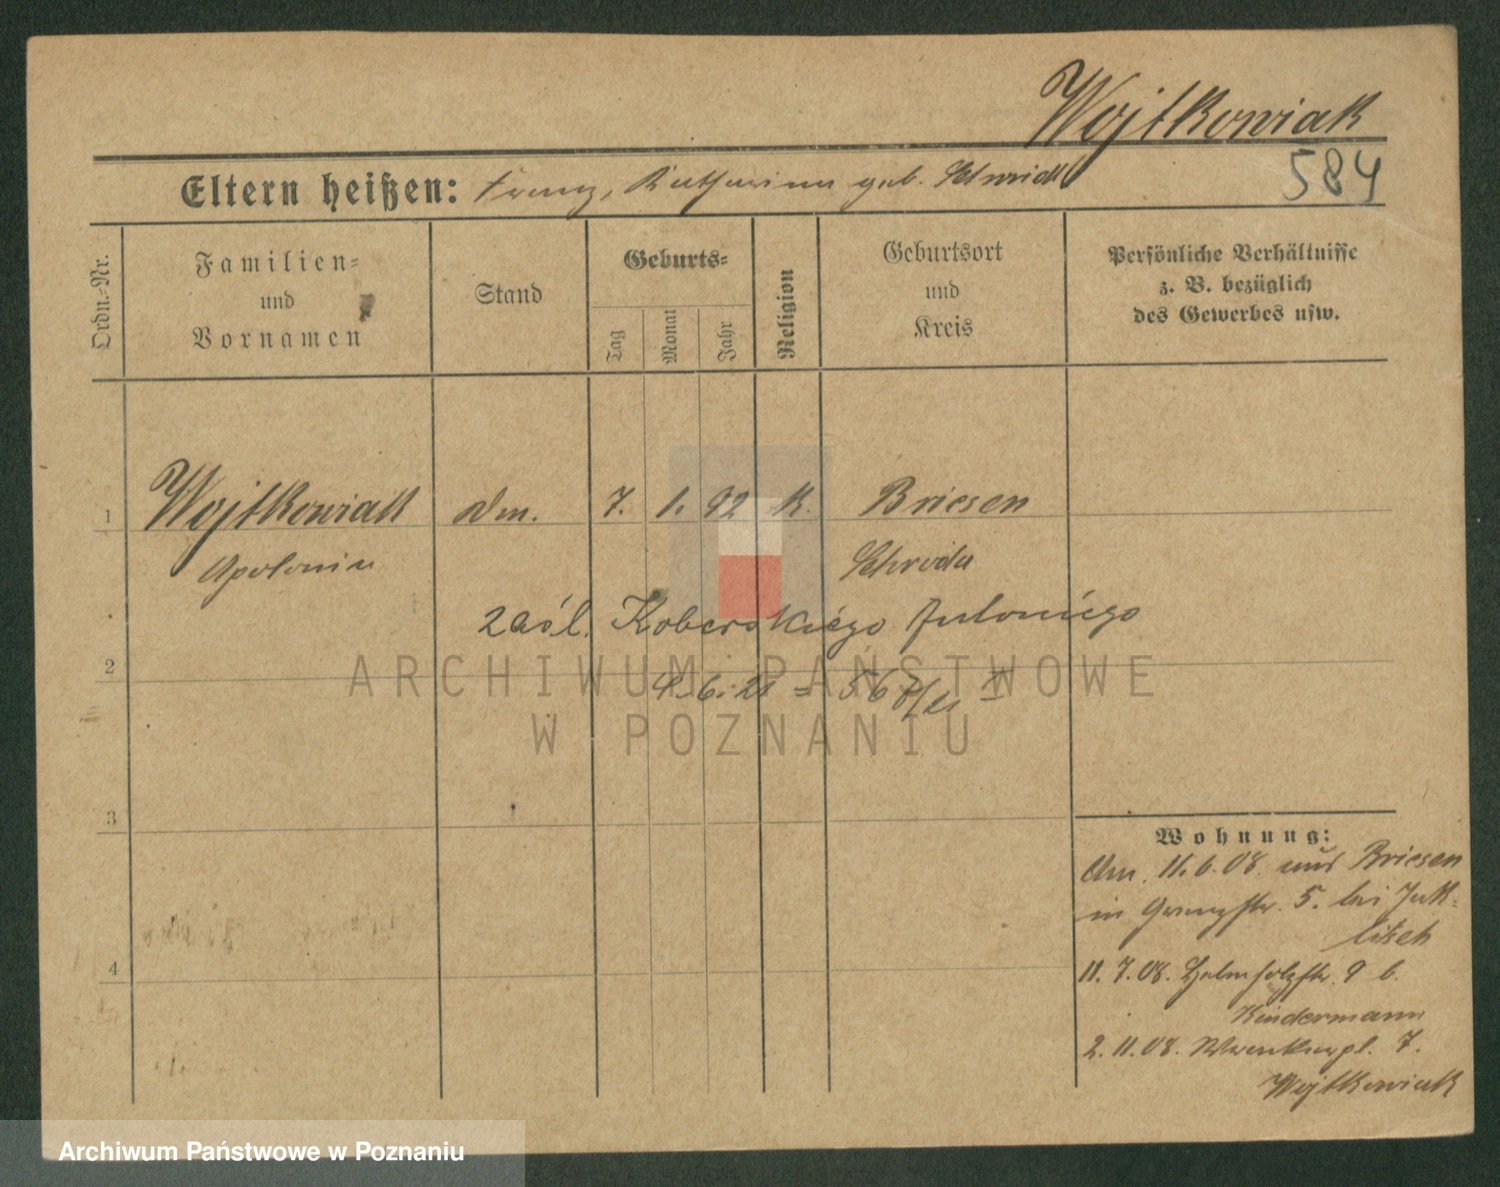 Wojtkowiak
584
Eltern heißen: Franz, Katharina geb. Schmidt
Ordn.-Nr.
Familien-
und
Vornamen
Stand
Geburts-
Tag
Monat
Jahr
Religion
Geburtsort
und
Kreis
Persönliche Verhältnisse
z. B. bezüglich
des Gewerbes usw.
1 Wojtkowiak 7. 1. 92 K. Briesen
Apolonia Schroda
zaśl. Koberskiego Antoniego
2 4.6.21 =
3
4
Wohnung:
11.6.08. aus Briesen
in 5. bei
11.7.08. Helmholzstr. 9 b.
Kindermann
2.11.08. 7.
Wojtkowiak
ARCHIWUM PAŃSTWOWE
W POZNANIU
Archiwum Państwowe w Poznaniu